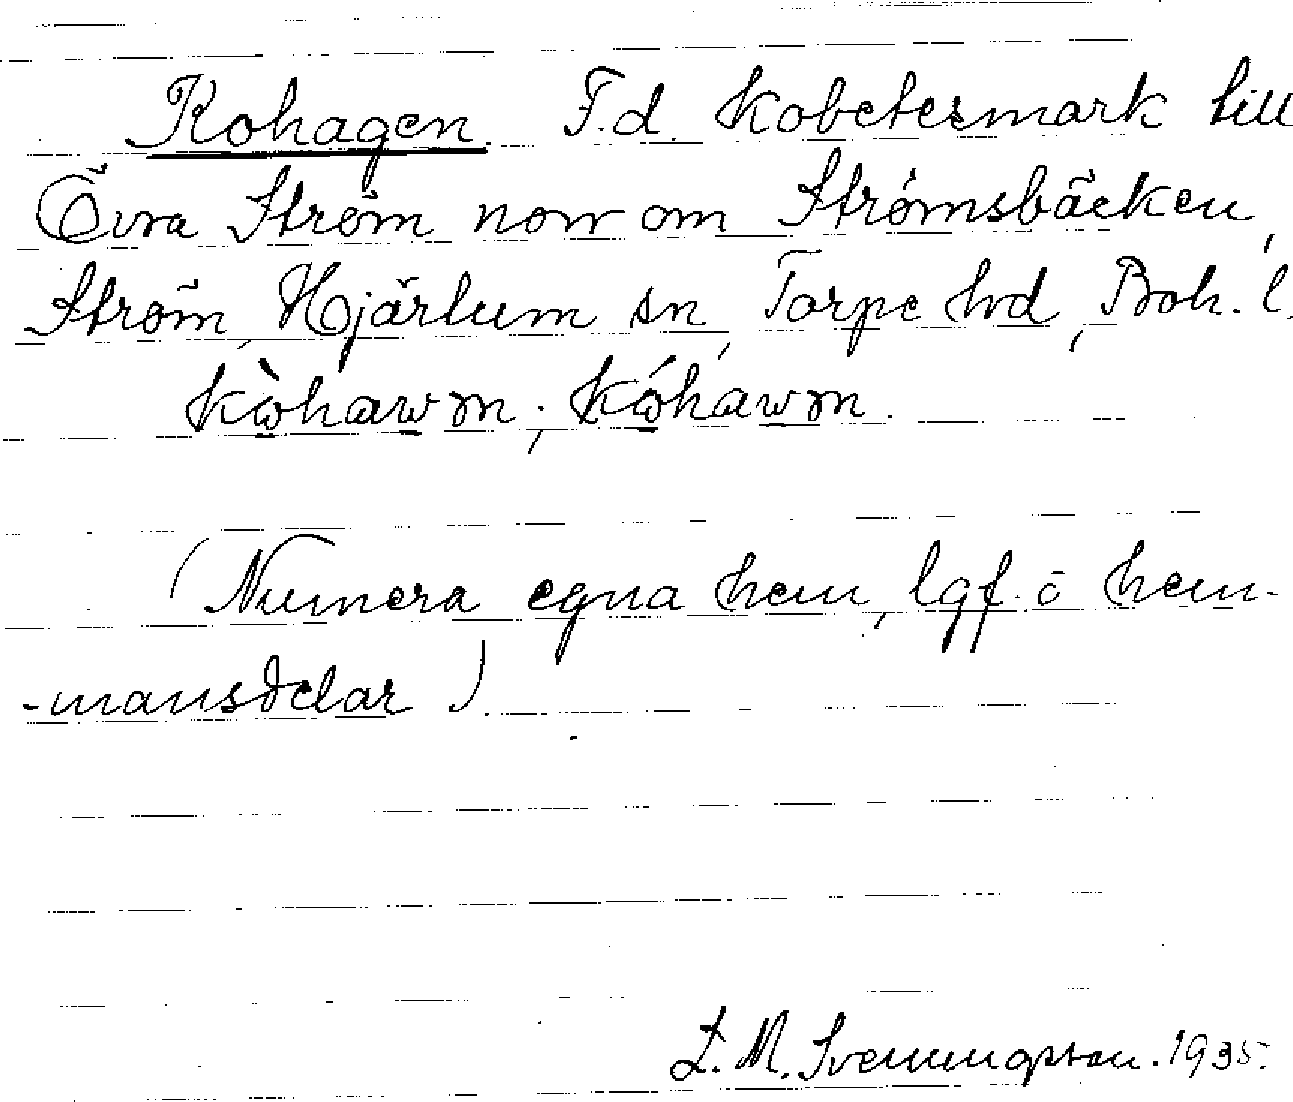 Kohagen. F.d. kobetesmark till
Övra Ström norr om Strömsbäcken,
Ström, Hjärtum sn, Torpe hd, Boh. l.
(Numera egna hem, lgf. ö hem-
-mansdelar).
L. M. Svenungsson. 1935.